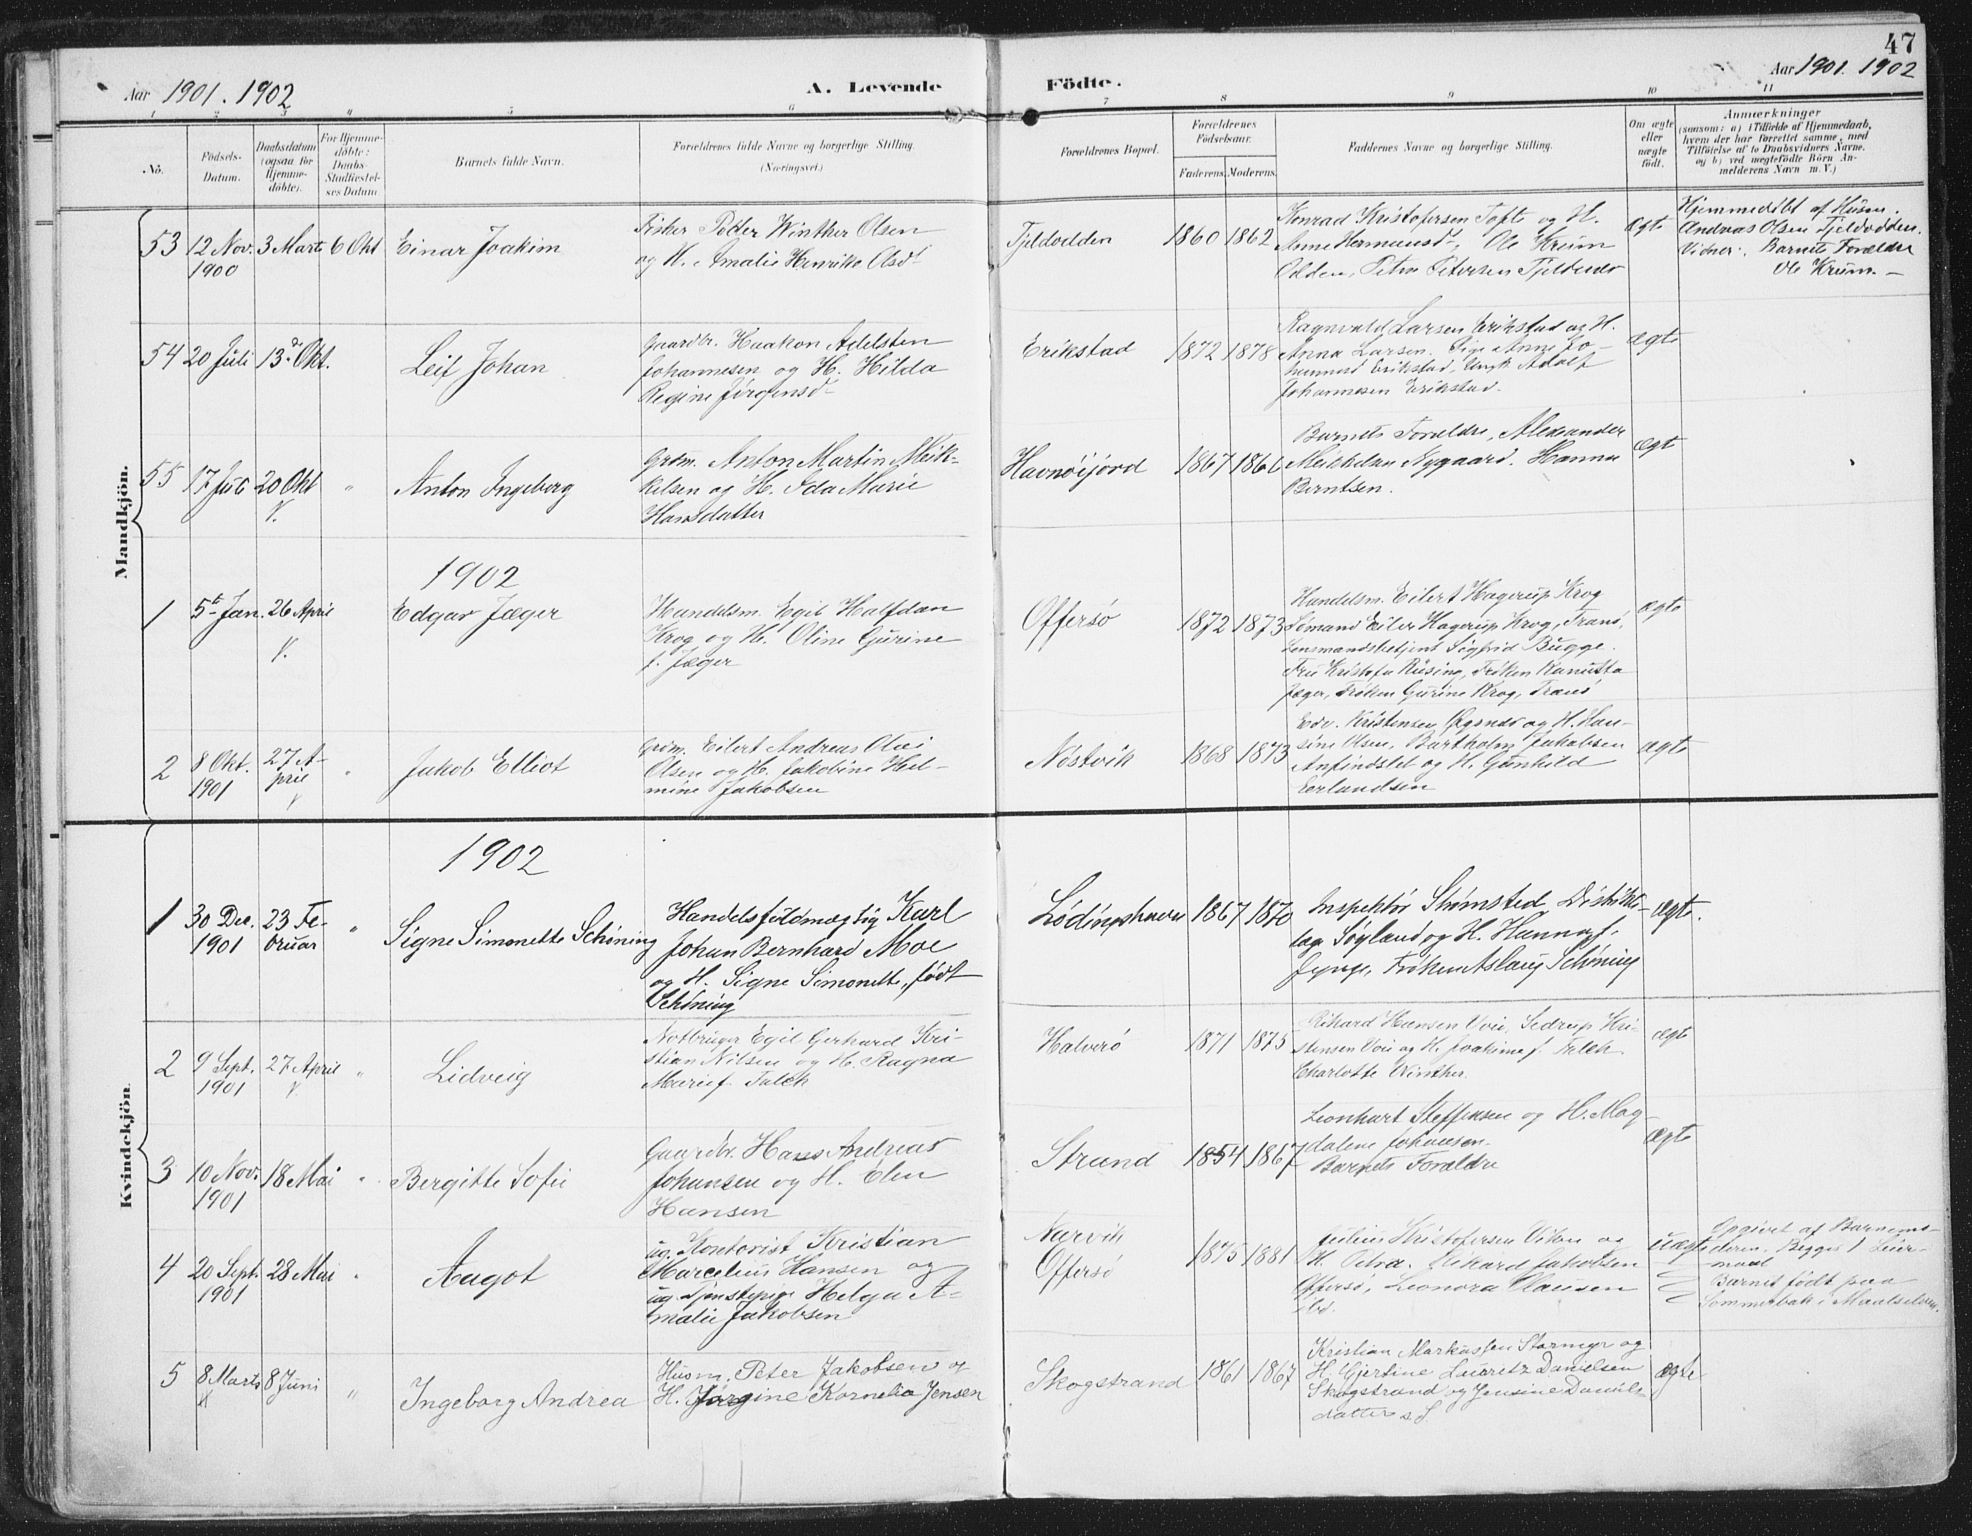 47
Aar 1901. 1902
A. Levende
Födte.
Aar 1901. 1902
1 2 3 4 5 6 7 8 9 10 11
No.
Födsels-Datum.
Daabsdatum (ogsaa for Hjemme-döbte).
For Hjemme-döbte: Daabs-Stadfæstel-ses Datum
Barnets fulde Navn.
Forældrenes fulde Navne og borgerlige Stilling.
(Næringsvei.)
Forældrenes Bopæl.
Forældrenes Födselsaar.
Faderens. Moderens.
Faddernes Navne og borgerlige Stilling.
Om ægte eller uægte födt.
Anmærkninger
(saasom: a) i Tilfælde af Hjemmedaab, hvem der har forrettet samme, med Tilföielse af to Daabsvidners Navne. og b) ved uægtefödte Börn An-melderens Navn m. V.)
Mandkjön.
53 12 Nov. 1900 3 Marts 6 Okt Einar Joakim
Fisker Peder Winther Olsen
og H. Amalie Henrikke Olsdt
Tjeldodden 1860 1862
Konrad Kristofersen Tofte og H.
Anne Hermansd., Ole Krum
Olden, Petra Petersen Tjeldodd
ægte
Hjemmedöbt af Husm.
Andreas Olsen Tjeldodden.
Vidner: Barnets Forældre
Ole Krum
54 20 Juli 13de Okt. Leif Johan
Gaardbr. Haakon Adelsten
Johannesen og H. Hilda
Regine Jörgensd
Erikstad 1872 1878
Ragnvald Larsen Erikstad og H.
Anna Larsen. Pige Anne Jo-
hannesd Erikstad, Ungk Adolf
Johannesen Erikstad.
ægte
55 17 Juli 20 Okt V. " Anton Ingeberg
Grdm. Anton Martin Meik-
kelsen og H. Ida Marie
Hansdatter
Havnöijord 1867 1866
Barnets Forældre, Alexander
Meikkelsen Nygaard. Hanna
Berntsen.
ægt
1902
1 5te Jan. 26 April V. Edgar Jæger
Handelsm. Egil Halfdan
Krog og H. Oline Gurine
f. Jæger
Offersö 1872 1873
Handelsm. Eilert Hagerup Krog
Sömand Eiler Hagerup Krog, Tranö,
Lensmandsbetjent Sigfrid Bugge.
Fru Kristofa Rüsing, Fröken Kanutta
Jæger, Fröken Gurine Krog, Tranö
ægte
2 8 Okt. 1901 27 April V " Jakob Elliot
Grdm. Eilert Andreas Olai
Olsen og H. Jakobine Hel-
mine Jakobsen
Nöstvik 1868 1873
Edv. Kristensen og H. Han-
sine Olsen, Bartholm Jakobsen
Anfindslet og H. Gunhild
Erlandsen
ægte
Kvindekjön.
1902
1 30 Dec. 1901 23 Februar " Signe Simonette Schöning
Handelsfuldmægtig Karl
Johan Bernhard Moe
og H. Signe Simonette, född
Schöning
Lödingshavn 1867 1870
Inspektör Strömsted, Distrikts-
læge Sögland og H. Hanna f.
Fröken Aslaug Schöning
ægte.
2 9 Sept. 1901 27 April V. " Lidveig
Notbruger Egil Gerhard Kri-
stian Nilsen og H. Ragna
Marie f. Falch
Halverö 1871 1875
Rikard Hansen Voie, Sedrup Kri-
stensen Voie og H. Joakime f. Falch
Charlotte Winther.
ægt
3 10 Nov. 1901 18 Mai " Bergitte Sofie
Gaardbr. Hans Andreas
Johansen og H. Elen
Hansen
Strand 1854 1867
Leonhart Steffensen og H. Mag-
dalene Johansen.
Barnets Forældre
ægte
4 20 Sept. 1901 28 Mai " Aagot
ug. Kontorist Kristian
Marcelius Hansen og
ug. Tjenstepige Helga A-
malie Jakobsen
Narvik
Offersö
1875 1881
Julius Kristofersen Viken og
H. Petra. Rikard Jakobsen
Offersö, Leonora Clausen
ibd.
uægte
Opgivet af Barnemo-
deren. Begges 1 Leier-
maal
Barnet födt paa
Sommerbak i Maalselven.
5 8 Marts 8 Juni " Ingeborg Andrea
Husm. Peter Jakobsen og
H. Jörgine Kornelia Jensen
Skogstrand 1861 1867
Kristian Markussen Stormyr og
H. Gjertine, Lauretz Danielsen
Skogstrand og Jensine Daniels-
datter s S
ægte